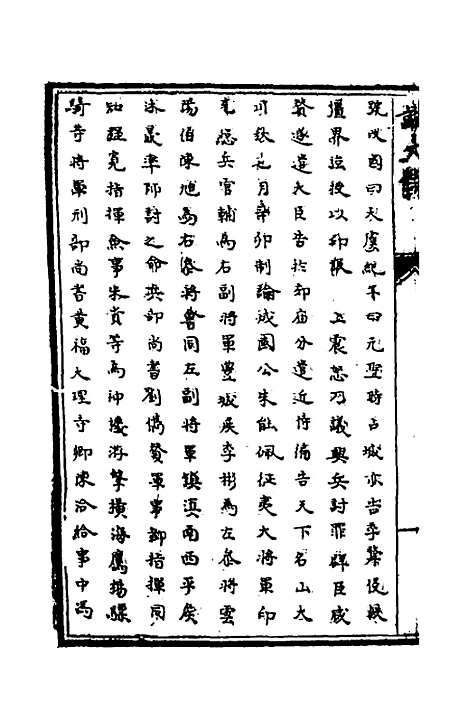 號改國曰大虞紀年曰元聖時占城亦告季犛侵軼
疆界迫授以印服　上震怒乃議興兵討罪群臣咸
贊遂遣大臣告於郊廟分遣近侍徧告天下名山大
川秋七月癸卯制諭成國公朱能佩征夷大將軍印
充總兵官輔為右副將軍豐城侯李彬為左參將雲
陽伯陳旭為右參將會同左副將軍鎮滇南西平侯
沐晟率師討之命兵部尚書劉儁贊軍事都指揮同
知程寬指揮僉事朱貴等為神機游擊橫海鷹揚驃
騎等將軍刑部尚書黃福大理寺卿陳洽給事中馮